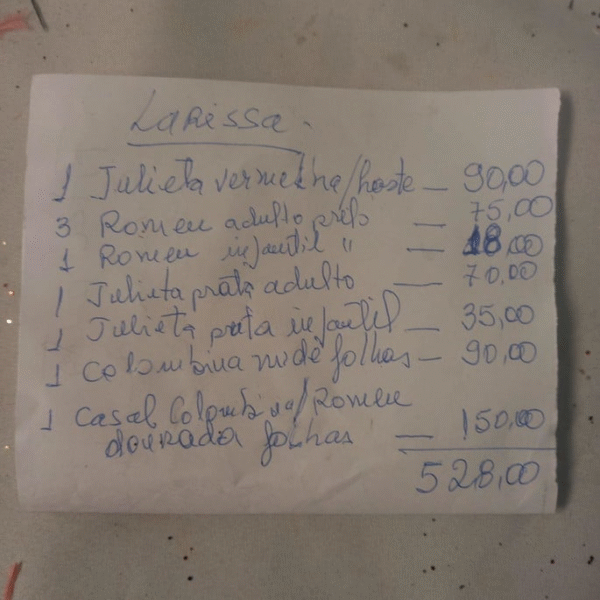 Larissa -
1 Julieta vermelha/haste — 90,00
3 Romeu adulto preto — 75,00
1 Romeu infantil " — 18,00
1 Julieta prata adulto — 70,00
1 Julieta prata infantil — 35,00
1 Colombina nude folhas — 90,00
1 Casal Colombina/Romeu
dourada folhas — 150,00
528,00